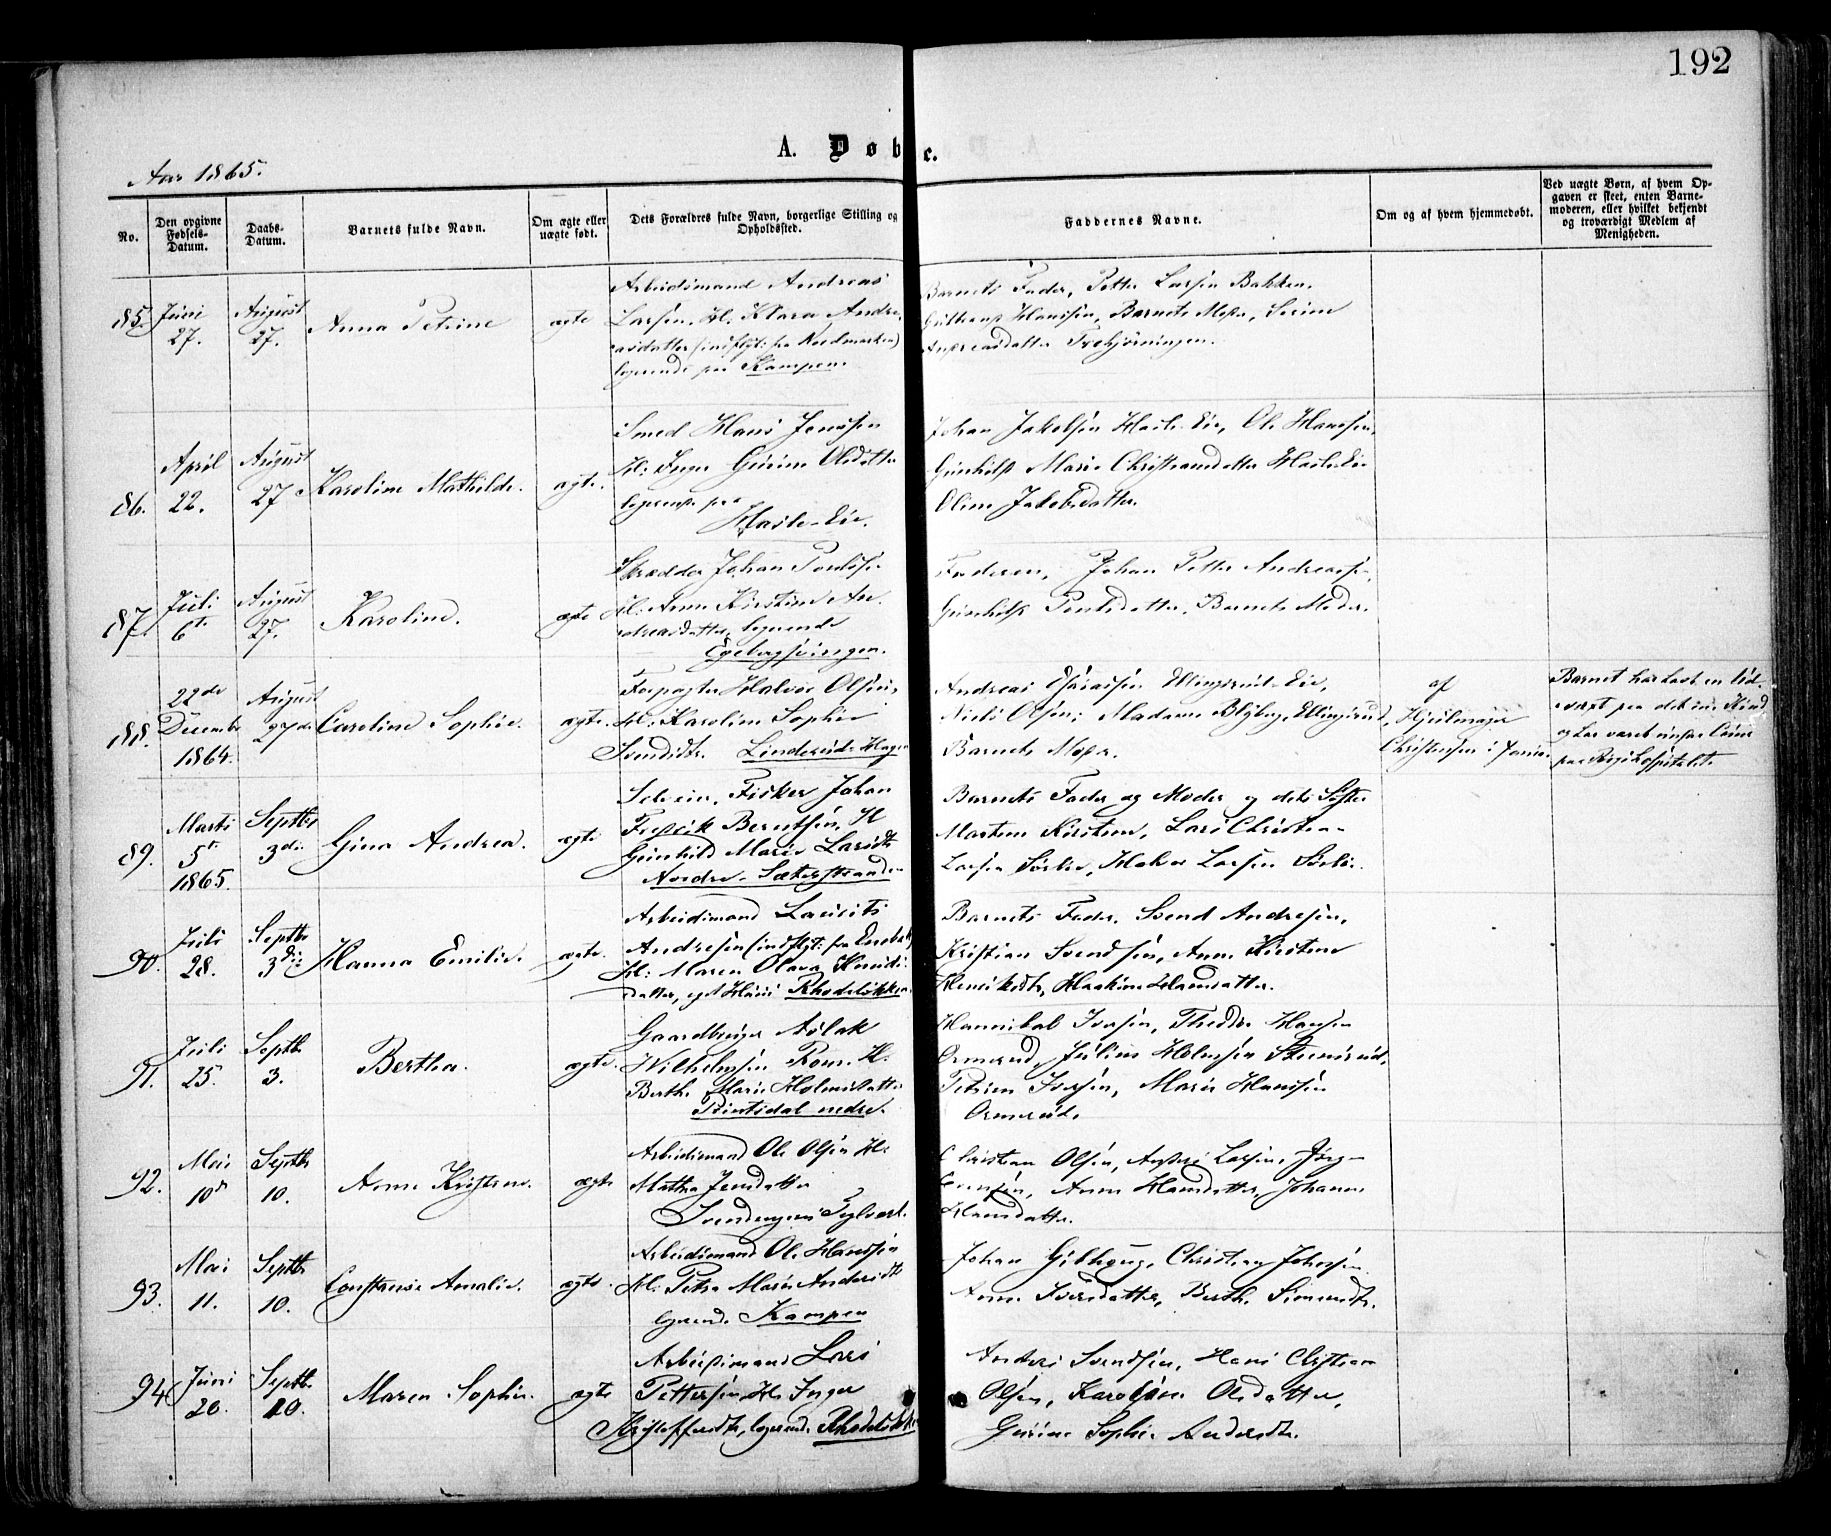 192
A. Døbte.
Aar 1865.
No.
Den opgivne
Fødsels-
Datum.
Daabs-
Datum.
Barnets fulde Navn.
Om ægte eller
uægte født.
Dets Forældres fulde Navn, borgerlige Stilling og
Opholdssted.
Faddernes Navne.
Om og af hvem hjemmedøbt.
Ved uægte Børn, af hvem Op-
gaven er skeet, enten Barne-
moderen, eller hvilket bekjendt
og troværdigt Medlem af
Menigheden.
85.
Juni
27.
August
27.
Anna Petrine
ægte
Arbeidsmand Andreas
Larsen, H. Klara Andre-
asdatter (indflyt: fra Nordmarken)
logerende paa Kampen.
Barnets Fader, Petter Larsen Bakken,
Guttorm Hansen, Barnets Moder, Serine
Andreasdatter
86.
April
22.
August
27
Karoline Mathilde.
ægte.
Smed Hans Jensen
H: Inger Gurine Olsdatter
logerende paa
Hasle-Eie.
Johan Jakobsen Hasle-Eie, Ole Hansen,
Gunhild Marie Christiansdatter Hasle-Eie
Oline Jakobsdatter.
87.
Juli
6te
August
27.
Karoline.
ægte
Skrædder Johan
H. Anne Kirstine An-
dreasdatter, logerende
Egebergsvingen.
Faderen, Johan Petter Andreas
Gunhild Barnets Moder.
88.
22de
Decembr
1864.
August
27de
Caroline Sophie.
ægte.
Forpagter Halvor Olsen,
H. Karoline Sophie
Svendsdtr. Linderud-Hagen
Andreas Esaiassen Ellingsrud-Eie,
Niels Olsen, Madame Ellingsrud,
Barnets Moder.
af
Hjulmager
Christensen i
Barnet har havt en Ud-
væxt paa det ene Kind
og har været under Cuur
paa Rigshospitalet.
89.
Marts
5te
1865.
Septbr
3die
Gina Andrea.
ægte
Selveier, Fisker Johan
Fredrik Berntsen, H
Gunhild Marie Larsdtr
Nordre-Sæterstranden
Barnets Fader og Moder og dets Søster
Martine Kirstine, Lars Christian
Larsen Sørlie, Halvor Larsen Sørlie.
90.
Juli
28.
Septbr
3die
Hanna Emilie.
ægte.
Arbeidsmand Laurits
Andresen (indflyt: fra Enebak)
H: Maren Olava Knuds-
datter, eget Huus Rhodeløkken
Barnets Fader, Svend Andresen,
Kristian Svendsen, Anne Kirstine
Henriksdtr, Hansdatter.
91.
Juli
25.
Septbr
3.
Bertha.
ægte.
Gaardbruger Aslak
Wilhelmsen H.
Berthe Marie Holmsdatter
nedre.
Hannibal Iversen, Theodor Hansen
Ormerud, Julius Holmsen
Petrine Iversen, Marie Hansen
Ormerud.
92.
Mai
10de
Septbr
10.
Anne Kristine.
ægte
Arbeidsmand Ole Olsen H.
Mathea Jensdatter
Christian Olsen, Anders Larsen, Jørgen
Evensen, Anne Hansdatter, Johanne
Hansdatter.
93.
Mai
11.
Septbr
10.
Constanse Amalie.
ægte.
Arbeidsmand Ole Hanssen
H. Petra Marie Andersdtr
logerende Kampen
Johan Christian Johnsen,
Anne Iversdatter, Berthe Simensdtr.
94
Juni
20.
Septbr
10.
Maren Sophie.
ægte
Arbeidsmand Lars
Pettersen, H. Inger
Kristoffersdtr, logerende Rhodeløkken
Anders Svendsen, Hans Christian
Olsen, Karoline Olsdatter,
Gurine Sophie Andersdtr.